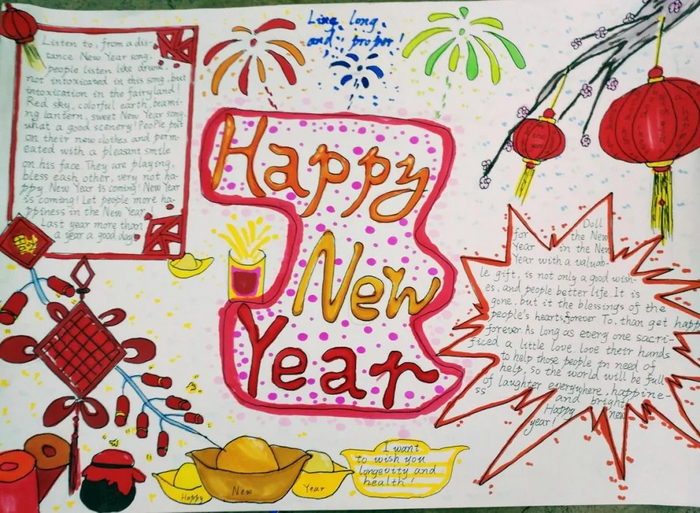 Listen to, from a dis-
tance New Year song,
people listen like drunk,
not intoxicated in this song, but
intoxication in the fairyland!
Red sky, colorful earth, beami-
ng lantern, sweet New Year song,
what a good scenery! People put
on their new clothes and perm-
eated with a pleasant smile
on his face. They are playing,
bless each other, very not ha-
ppy New Year is coming! New Year
is coming! Let people more ha-
ppiness in the New Year
Last year more than
a year a good day!
Line long
and proper!
Happy
New
Year
Doll
for the New
Year in the New
Year with a valuab-
le gift, is not only a good wish-
es, and people better life. It is
gone, but it the blessings of the
people's hearts, forever To, than get happy
forever. As long as every one sacri-
ficed a little love love their hands
to help those people in need of
help, so the world will be full
of laughter everywhere, happine-
ss and bright
Happy new
year!
Happy
New
Year
I want
to wish you
longevity and
health!